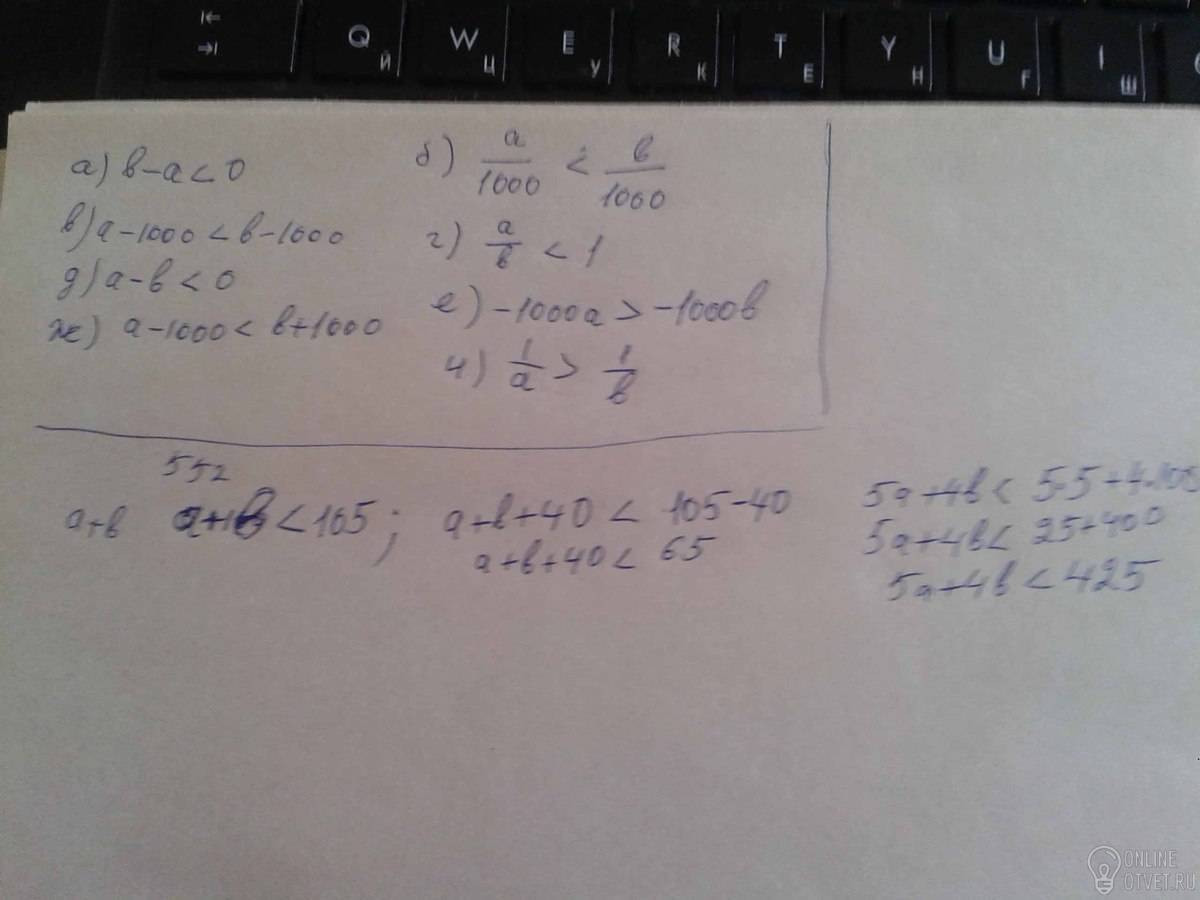 Q W E R T Y U I
Й Ц У К Е Н Г Ш
а) в-а<0
б) a/1000 < в/1000
в) а-1000<в-1000
г) a/в < 1
д) а-в<0
е) -1000а>-1000в
ж) а-1000<в+1000
и) 1/a > 1/в
552
а+в а+в<105; а+в+40< 105-40
а+в+40< 65
5а+4в< 5·5+4·105
5а+4в< 25+400
5а+4в<425
ONLINE
OTVET.RU